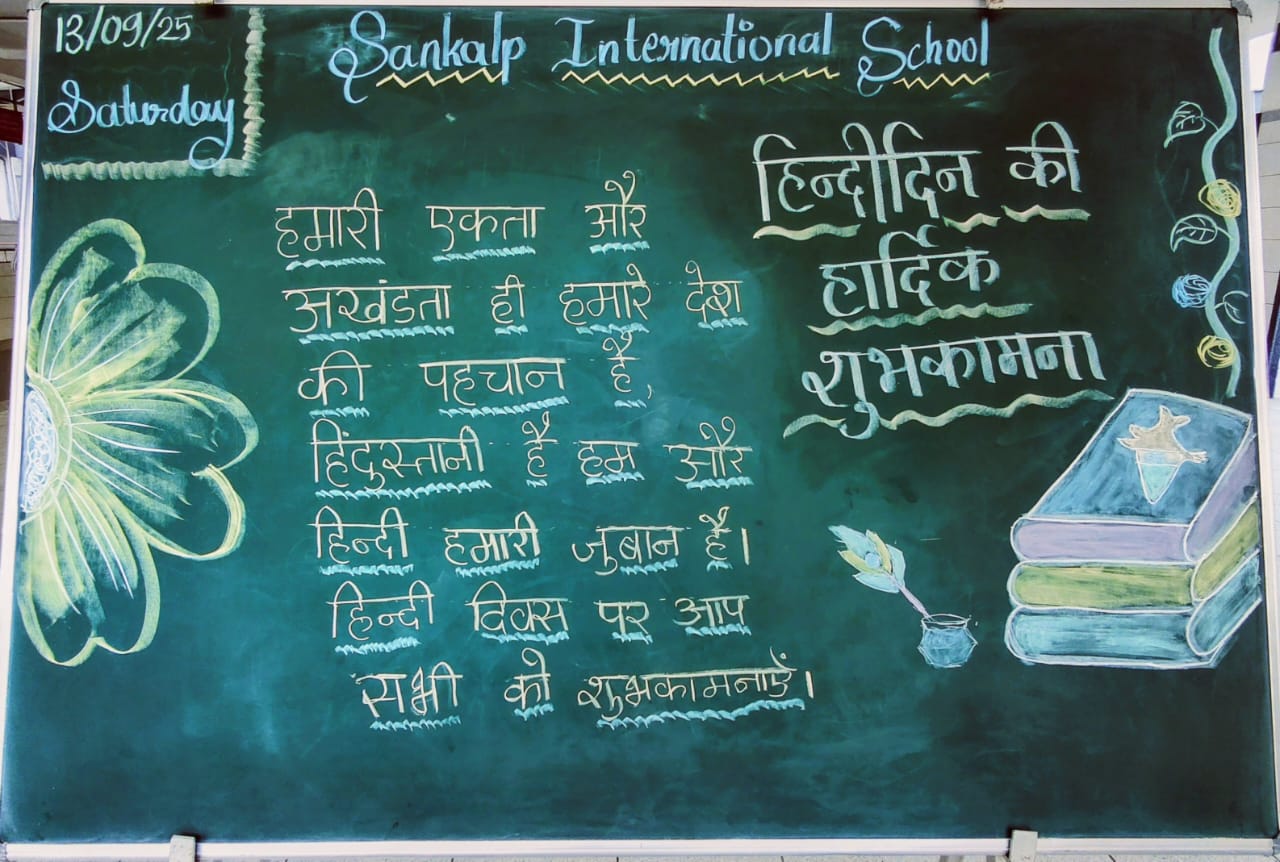 13/09/25
Saturday
Sankalp International School
हिन्दीदिन की
हार्दिक
शुभकामना
हमारी एकता और
अखंडता ही हमारे देश
की पहचान है,
हिंदुस्तानी है हम और
हिन्दी हमारी जुबान है।
हिन्दी दिवस पर आप
सभी को शुभकामनाएें।